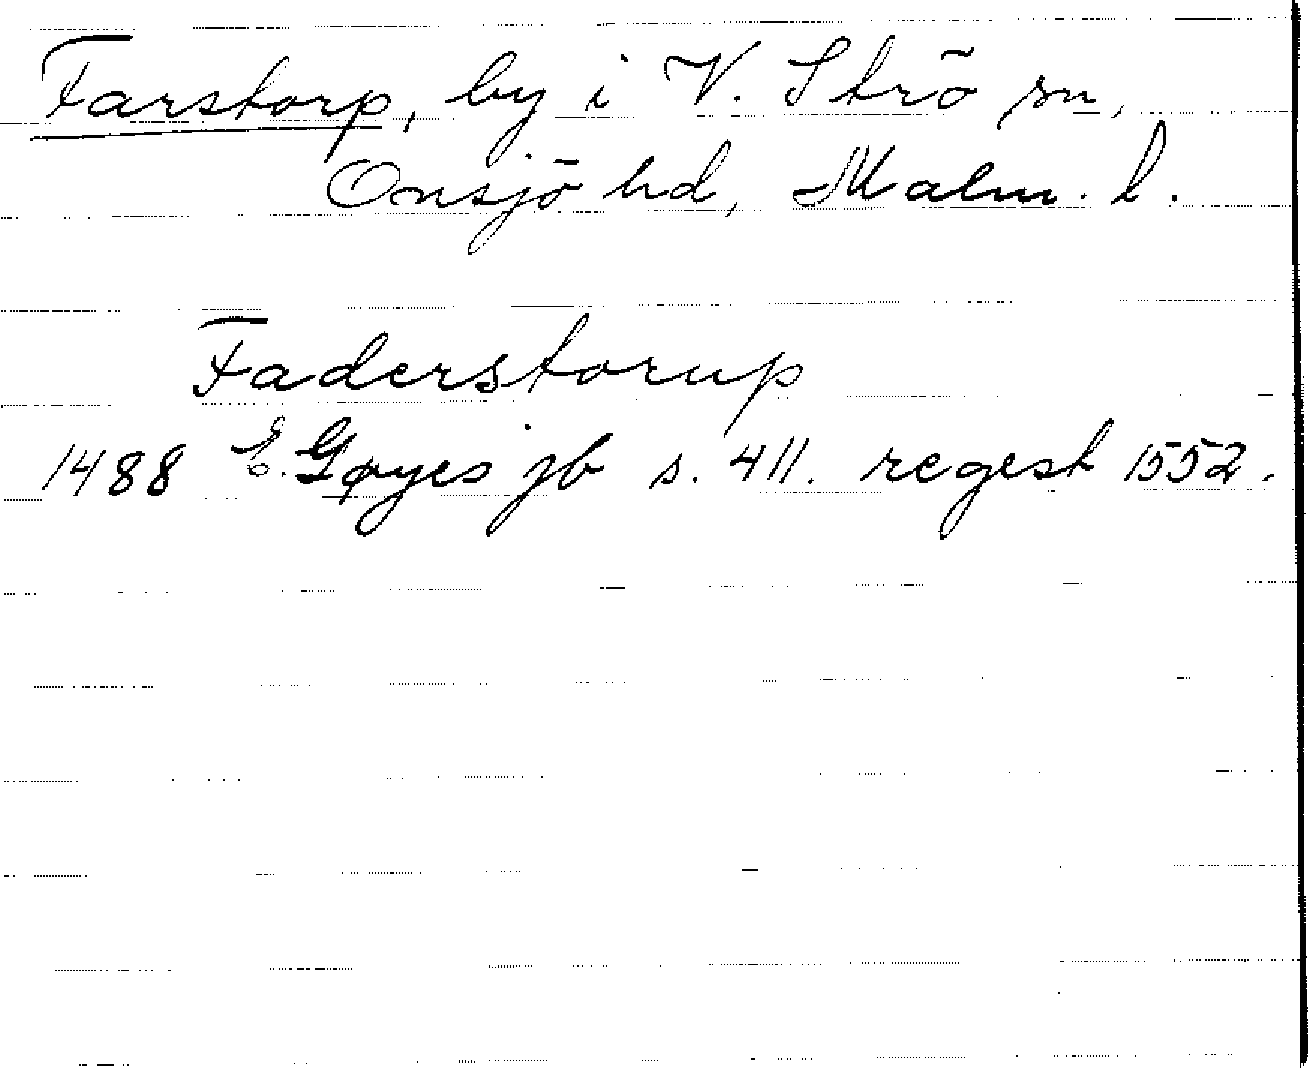 Farstorp, by i V. Strö sn,
Onsjö hd, Malm. l.
Faderstorup
1488 E. Gøyes jb s. 411. regest 1552.